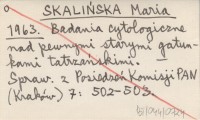 SKALIŃSKA Maria
1963. Badania cytologiczne
nad pewnymi starymi gatun-
kami tatrzańskimi. —
Spraw. z Posiedzeń Komisji PAN
(Kraków) 7: 502-503.